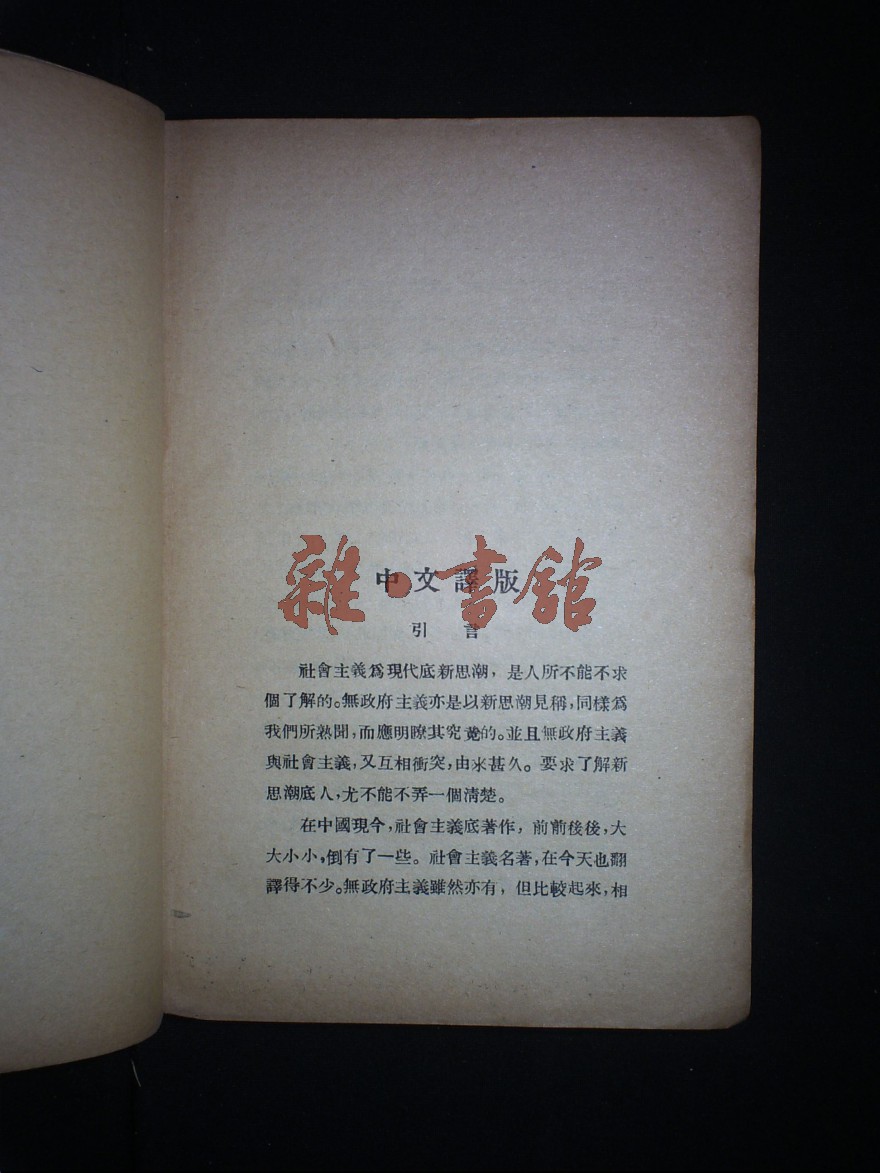 雜·書館
中文譯版
引言
社會主義爲現代底新思潮，是人所不能不求
個了解的。無政府主義亦是以新思潮見稱，同樣爲
我們所熟聞，而應明瞭其究竟的。並且無政府主義
與社會主義，又互相衝突，由來甚久。要求了解新
思潮底人，尤不能不弄一個清楚。
在中國現今，社會主義底著作，前前後後，大
大小小，倒有了一些。社會主義名著，在今天也翻
譯得不少。無政府主義雖然亦有，但比較起來，相